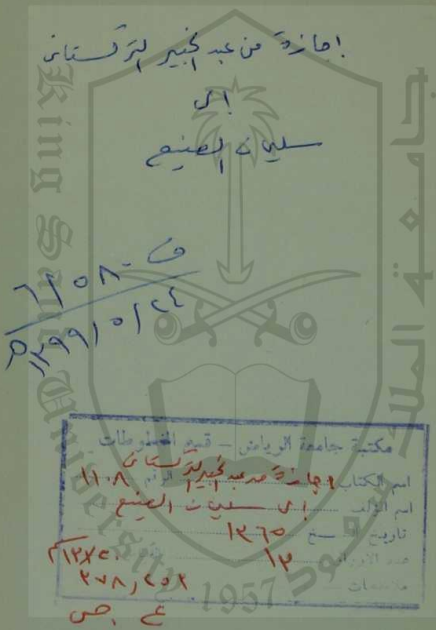 إجازة من عبد الخبير التركستاني
إلى
سليمان الصنيع
ف ١٠٥٨/٦
٢٤/٥/١٣٩٩هـ
مكتبة جامعة الرياض - قسم المخطوطات
اسم الكتاب إجازة من عبد الخبير التركستاني الرقم ١١٠٨
اسم المؤلف إلى سليمان الصنيع
تاريخ النسخ ١٣٦٥
عدد الأوراق ١٣
ملاحظات ٢٧٨,٢٥٢
ع ص
King Saud University
جامعة الملك سعود
1957